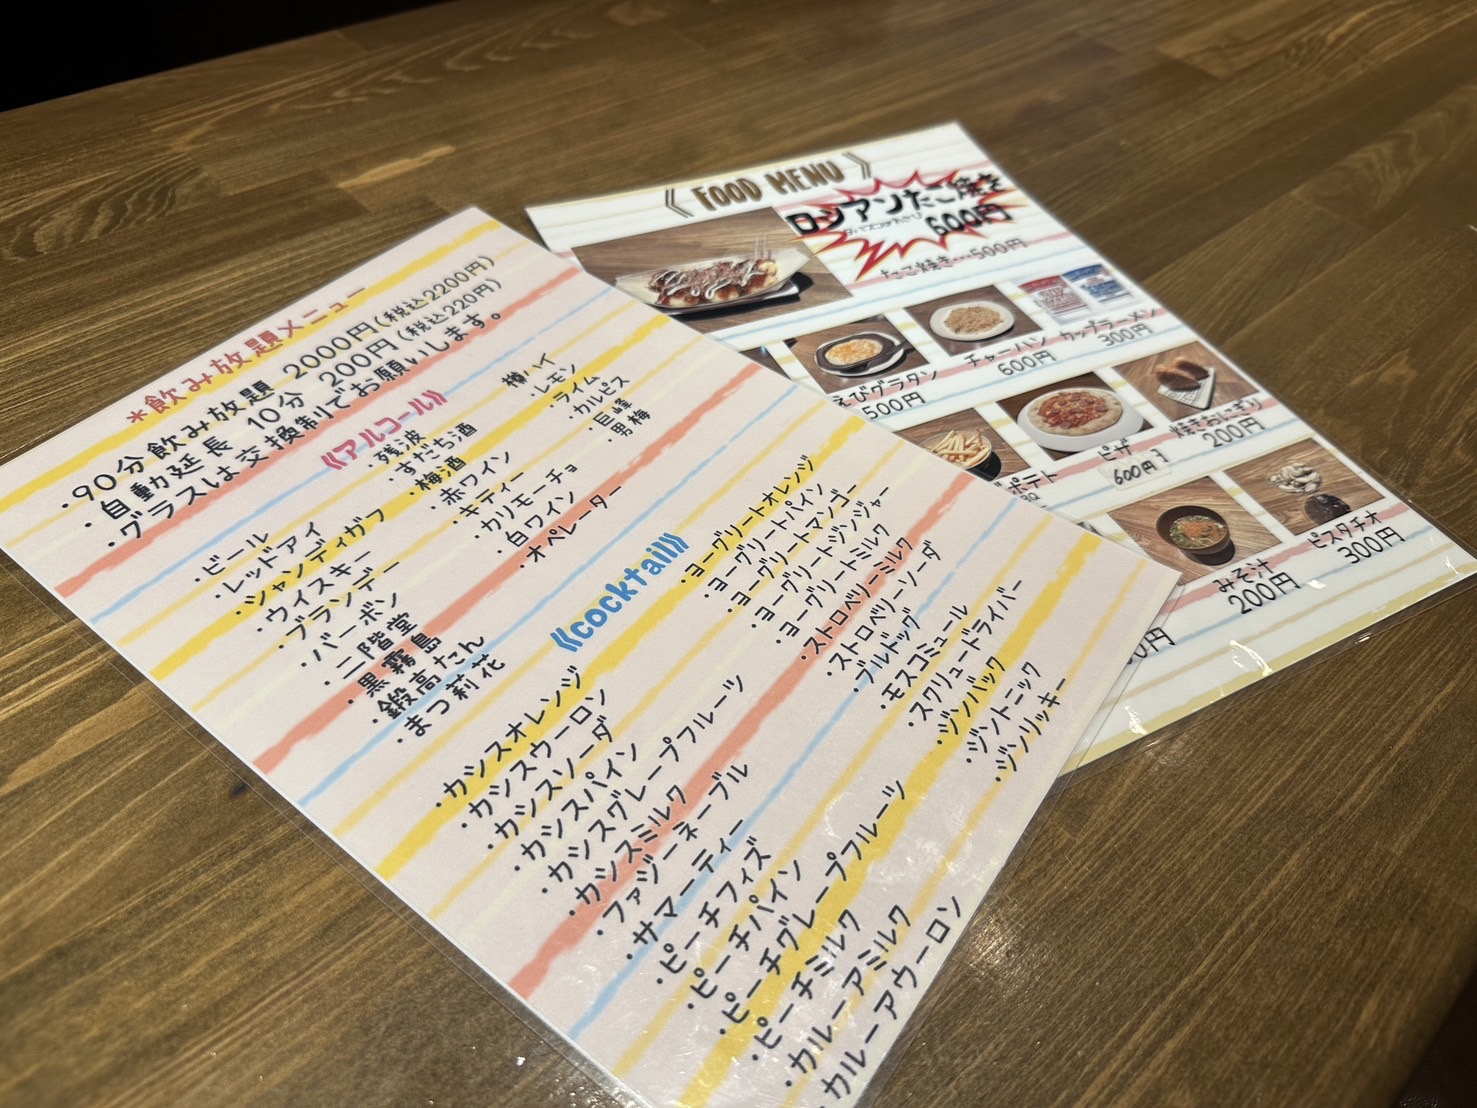 *飲み放題メニュー
・90分飲み放題 2000円(税込2200円)
・自動延長 10分 200円(税込220円)
・グラスは交換制でお願いします。
《アルコール》
・ビール
・レッドアイ
・シャンディガフ
・ウィスキー
・ブランデー
・バーボン
・二階堂
・黒霧島
・鍛高たん
・まつ莉花
・残波
・すだち酒
・梅酒
・赤ワイン
・キティー
・カリモーチョ
・白ワイン
・オペレーター
樽ハイ
・レモン
・ライム
・カルピス
・巨峰
・男梅
《cocktail》
・カシスオレンジ
・カシスウーロン
・カシスソーダ
・カシスパイン
・カシスグレープフルーツ
・カシスミルク
・ファジーネーブル
・サマーティー
・ピーチフィズ
・ピーチパイン
・ピーチグレープフルーツ
・ピーチミルク
・カルーアミルク
・カルーアウーロン
・ヨーグリートオレンジ
・ヨーグリートパイン
・ヨーグリートマンゴー
・ヨーグリートジンジャー
・ヨーグリートミルク
・ストロベリーミルク
・ストロベリーソーダ
・ブルドッグ
・モスコミュール
・スクリュードライバー
・ジンバック
・ジントニック
・ジンリッキー
《FOOD MENU》
ロシアンたこ焼き
600円
たこ焼き…500円
えびグラタン
500円
チャーハン
600円
カップラーメン
300円
ポテト
ピザ
600円
焼きおにぎり
200円
みそ汁
200円
ピスタチオ
300円